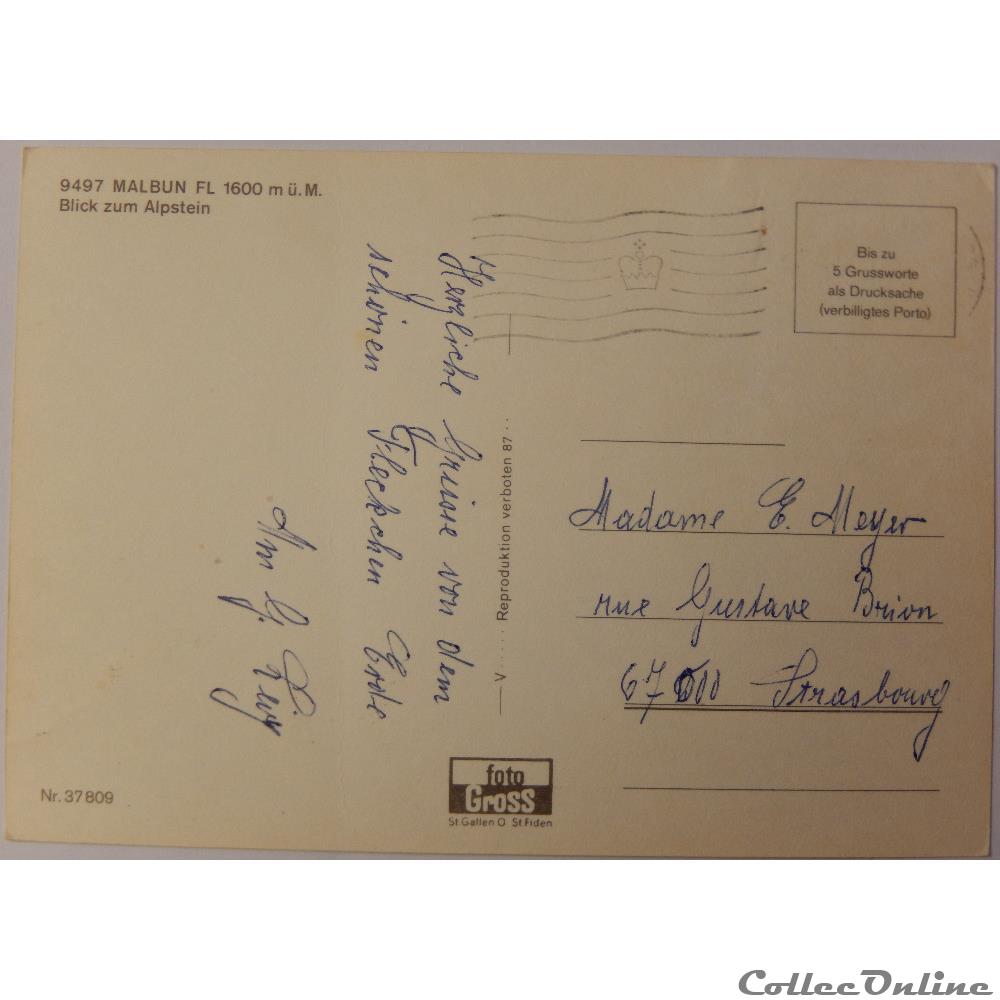 9497 MALBUN FL 1600 m ü. M.
Blick zum Alpstein
Herzliche Grüsse von dem
schönen Fleckchen Erde
Bis zu
5 Grussworte
als Drucksache
(verbilligtes Porto)
V ..... Reproduktion verboten 87 ..
Madame E. Meyer
rue Gustave Brion
67000 Strasbourg
Nr. 37809
foto
Gross
St Gallen O St Fiden
CollecOnline